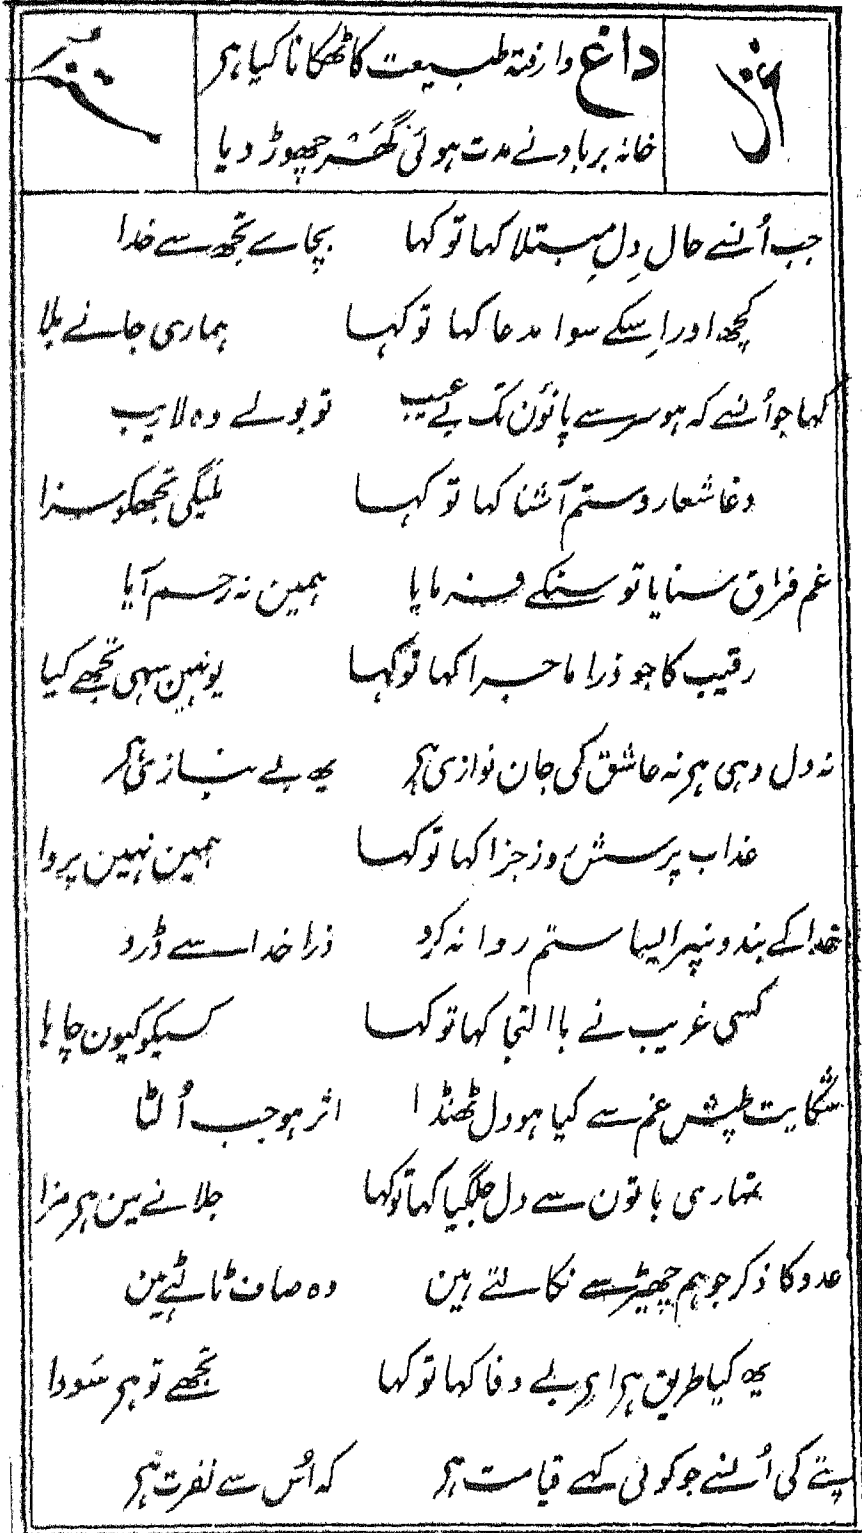 داغ وارفتہ طبیعت کا ٹھکانا کیا ہے
خانہ برباد نے مدت ہوئی گھر چھوڑ دیا
جب اُنسے حال دِلِ مبتلا کہا تو کہا بچاے تجھ سے خدا
کچھ اور اِسکے سوا مدعا کہا تو کہا ہماری جانے بلا
کہا جو اُنسے کہ ہو سر سے پانوُن تک بے عیب تو بولے وہ لاریب
دغا شعار و ستم آشنا کہا تو کہا ملیگی تجھکو سزا
غم فراق سنایا تو سنکے فرمایا ہمین نہ رحم آیا
رقیب کا جو ذرا ماجرا کہا تو کہا یونہین سہی تجھے کیا
نہ دل دہی ہے نہ عاشق کی جان نوازی ہے یہ بے نیازی ہے
عذاب پرسش روز جزا کہا تو کہا ہمین نہین پروا
خدا کے بندونپر ایسا ستم روا نہ کرو ذرا خدا سے ڈرو
کسی غریب نے باالتجا کہا تو کہا کسیکو کیون چاہا
شکایت طپش غم سے کیا ہو دل ٹھنڈا اثر ہو جب اُلٹا
تمہاری باتون سے دل جلگیا کہا تو کہا جلانے مین ہے مزا
عدو کا ذکر جو ہم چھیڑ سے نکالتے ہین وہ صاف ٹالتے ہین
یہ کیا طریق ہے اے بے وفا کہا تو کہا تجھے تو ہے سَودا
پتے کی اُنسے جو کوئی کہے قیامت ہے کہ اُس سے نفرت ہے